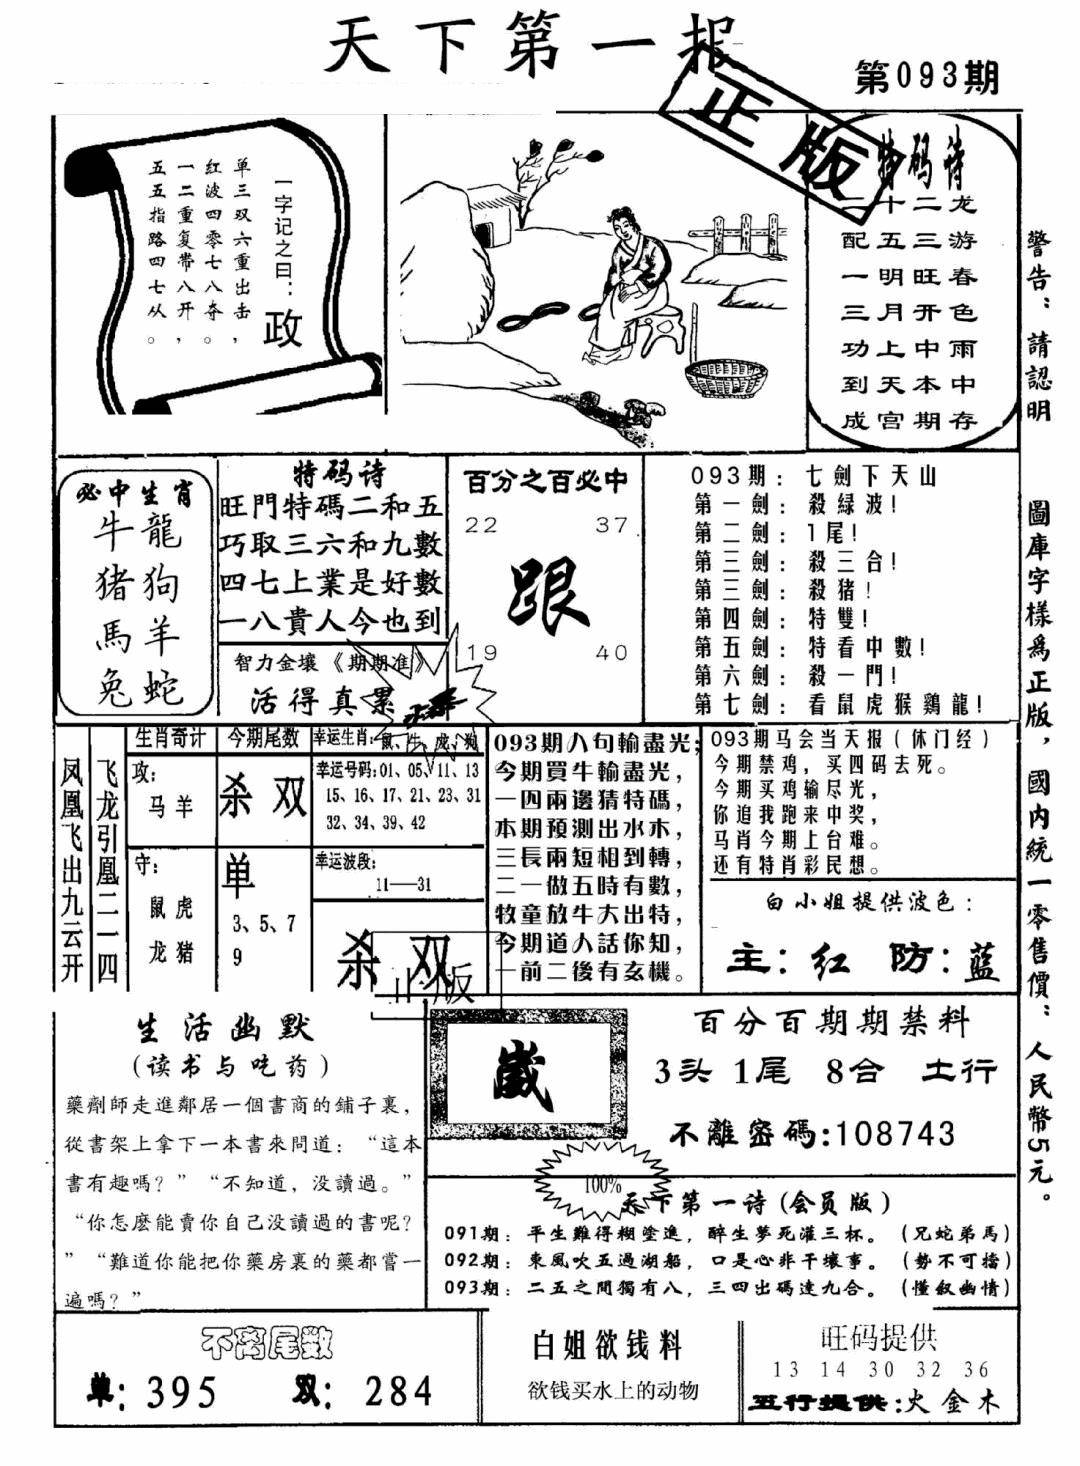 天下第一报
第093期
正版
一字记之曰：政
单三双六重出击，
红波四零七八夺。
一二重复带八开，
五五指路四七从。
特码诗
二十二龙
配五三游
一明旺春
三月开色
功上中雨
到天本中
成宫期存
警告：請認明
圖庫字樣為正版，國內統一零售價：人民幣5元。
必中生肖
牛龍
猪狗
馬羊
兔蛇
特码诗
旺門特碼二和五
巧取三六和九數
四七上業是好數
一八貴人今也到
智力金壤《期期准》
活得真累
百分之百必中
22 37
跟
19 40
093期：七劍下天山
第一劍：殺緑波！
第二劍：1尾！
第三劍：殺三合！
第三劍：殺猪！
第四劍：特雙！
第五劍：特看中數！
第六劍：殺一門！
第七劍：看鼠虎猴鷄龍！
凤凰飞出九云开
飞龙引凰二一四
生肖奇计
攻：
马羊
守：
鼠虎
龙猪
今期尾数
杀双
单
3、5、7
9
幸运生肖：鼠、牛、虎、狗
幸运号码：01、05、11、13
15、16、17、21、23、31
32、34、39、42
幸运波段：
11——31
杀双
正版
093期八句輸盡光；
今期買牛輸盡光，
一四兩邊猜特碼，
本期預測出水木，
三長兩短相到轉，
二一做五時有數，
牧童放牛大出特，
今期道人話你知，
一前二後有玄機。
093期马会当天报（休门经）
今期禁鸡，买四码去死。
今期买鸡输尽光，
你追我跑来中奖，
马肖今期上台难。
还有特肖彩民想。
白小姐提供波色：
主：红 防：蓝
生活幽默
（读书与吃药）
藥劑師走進鄰居一個書商的鋪子裏，
從書架上拿下一本書來問道：“這本
書有趣嗎？”“不知道，没讀過。”
“你怎麽能賣你自己没讀過的書呢？
”“難道你能把你藥房裏的藥都嘗一
遍嗎？”
歲
百分百期期禁料
3头 1尾 8合 土行
不離密碼：108743
100%
天下第一诗（会员版）
091期：平生難得糊塗進，醉生夢死灌三杯。（兄蛇弟馬）
092期：東風吹五過湖船，口是心非干壞事。（勢不可擋）
093期：二五之間獨有八，三四出碼達九合。（懂叙幽情）
不离尾数
单：395 双：284
白姐欲钱料
欲钱买水上的动物
旺码提供
13 14 30 32 36
五行提供：火金木